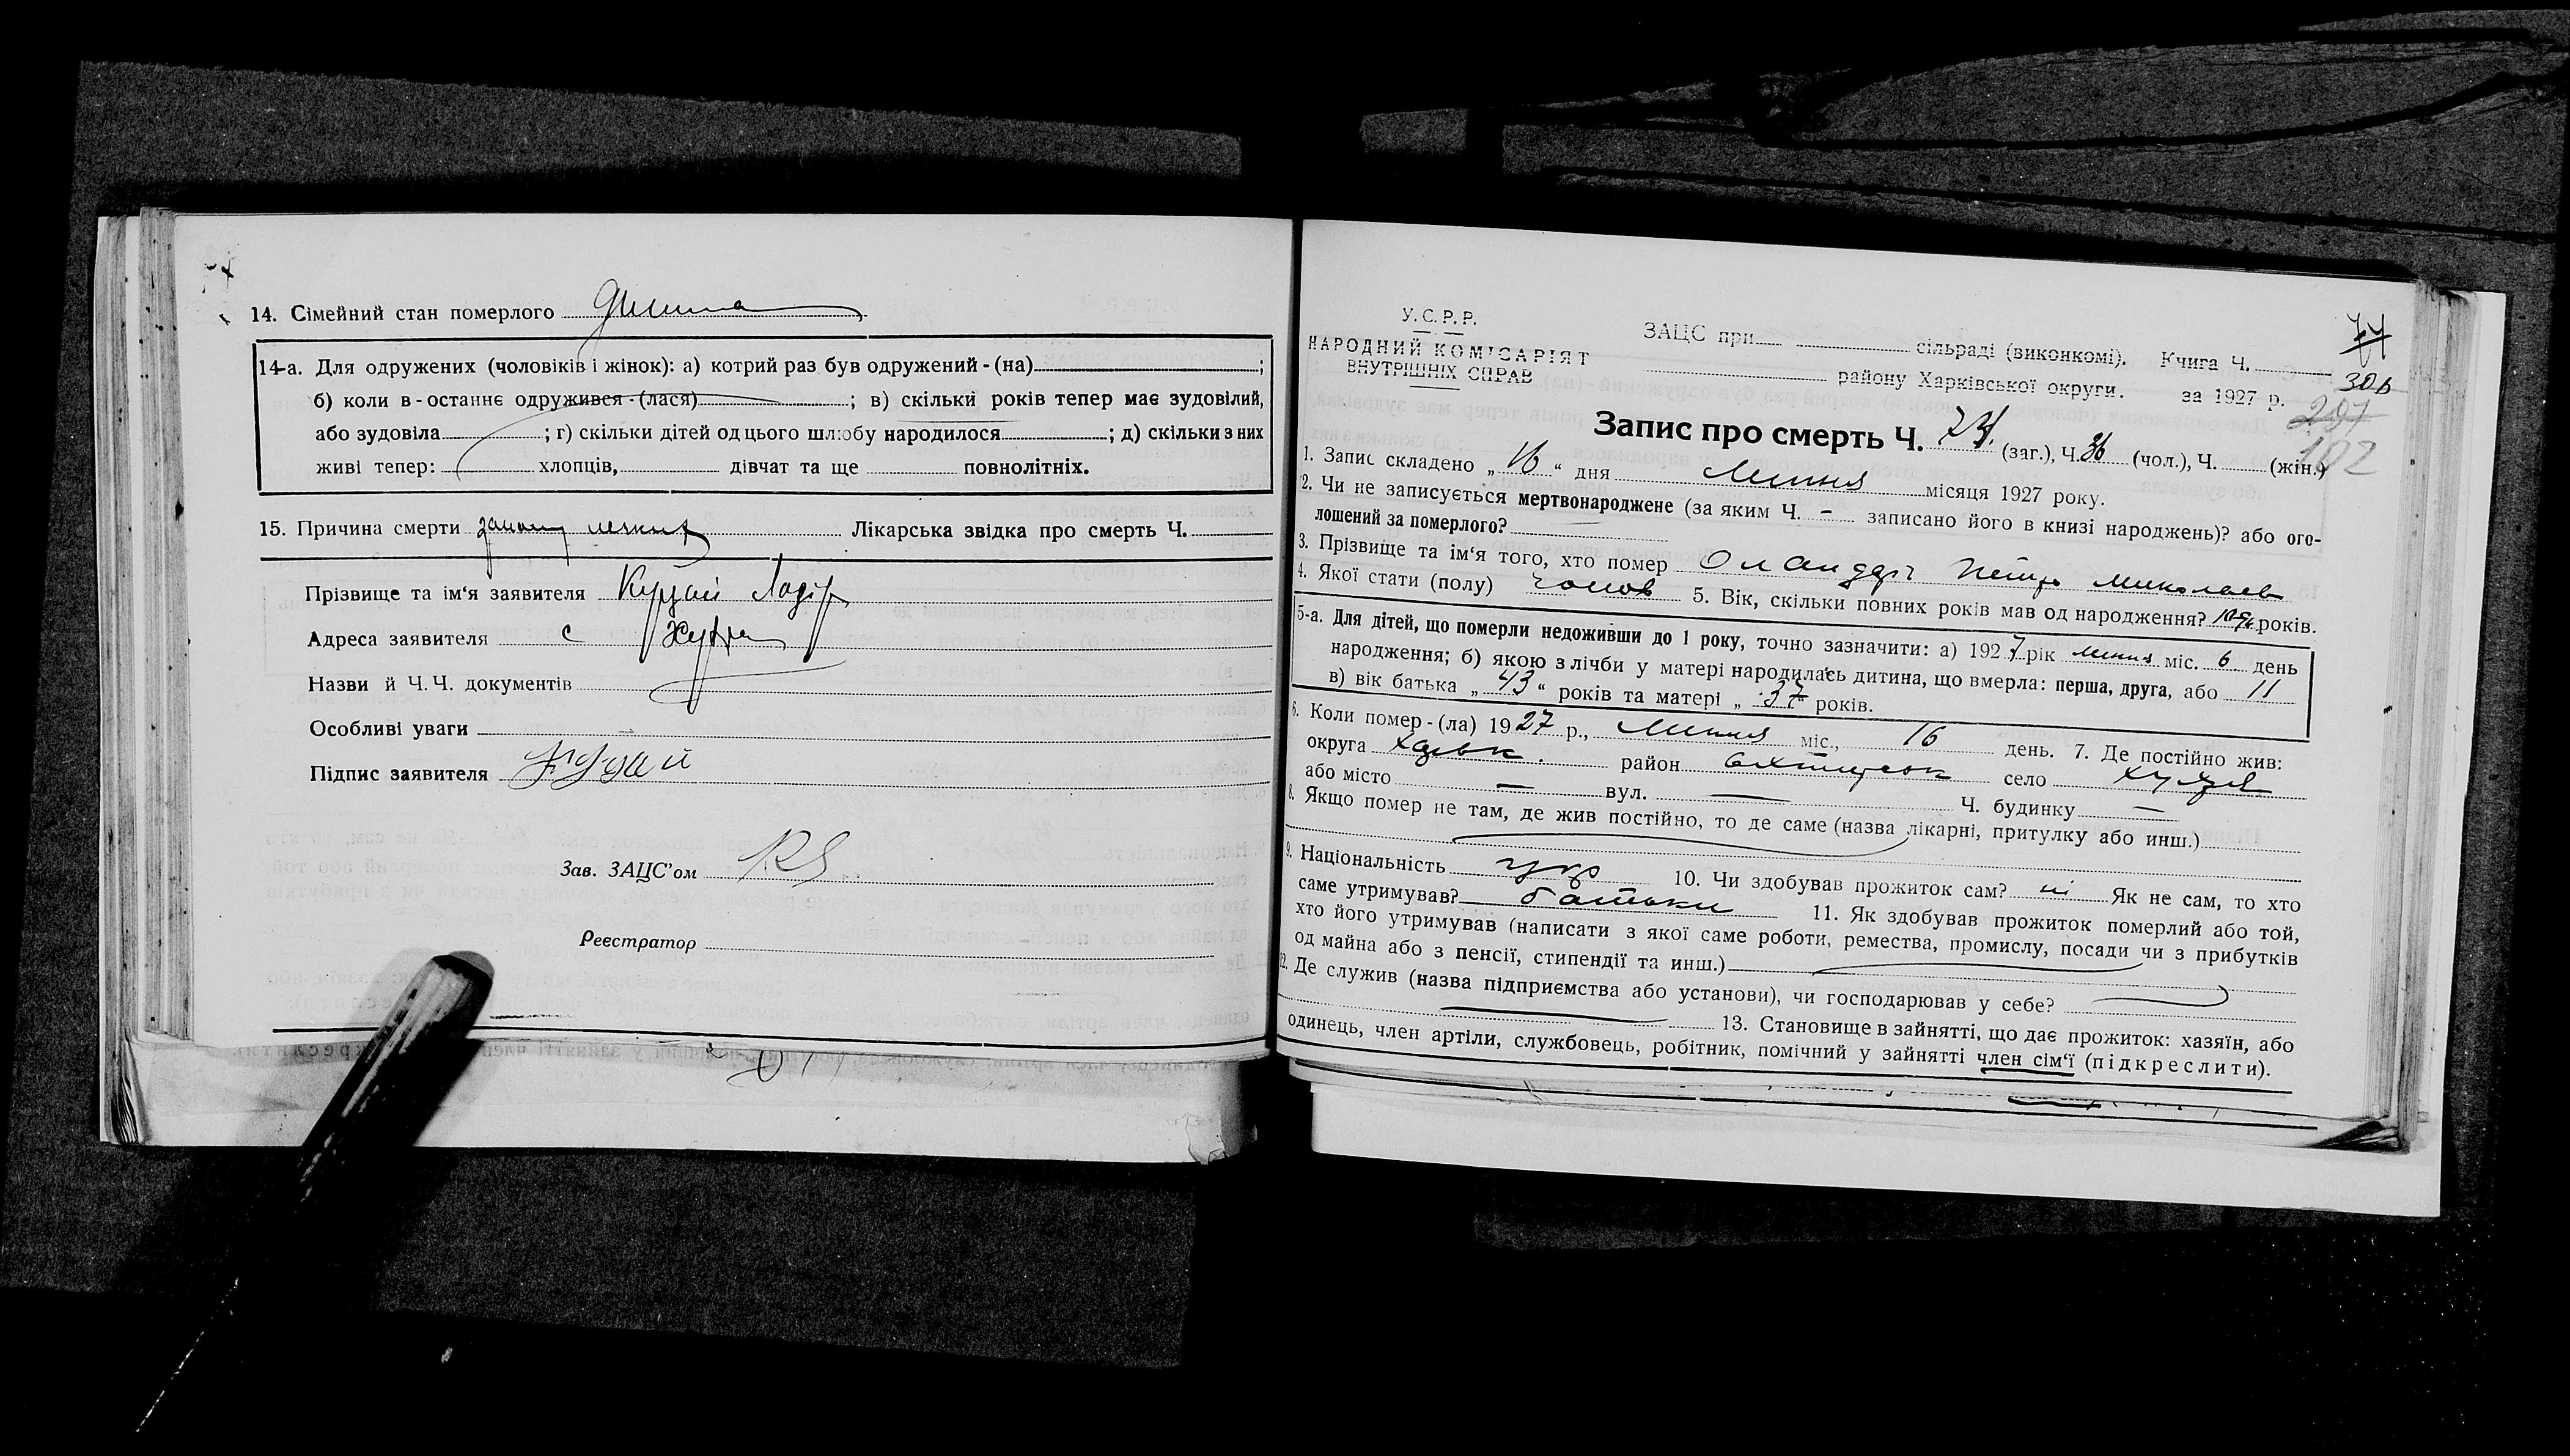 14. Сімейний стан померлого дитина
14-а. Для одружених (чоловіків і жінок): а) котрий раз був одружений - (на) ;
б) коли в-останнє одружився (лася) ; в) скільки років тепер має зудовілий,
або зудовіла ; г) скільки дітей од цього шлюбу народилося ; д) скільки з них
живі тепер: хлопців, дівчат та ще повнолітніх.
15. Причина смерти Лікарська звідка про смерть Ч.
Прізвище та ім'я заявителя
Адреса заявителя с
Назви й Ч.Ч. документів
Особливі уваги
Підпис заявителя
Зав. ЗАЦС'ом
Реєстратор
У.С.Р.Р.
НАРОДНИЙ КОМІСАРІЯТ
ВНУТРІШНІХ СПРАВ
ЗАЦС при сільраді (виконкомі). Книга Ч.
району Харківської округи. за 1927 р.
297
102
Запис про смерть Ч. 74 (заг.), Ч. 36 (чол.), Ч. (жін.)
1. Запис складено „ 16 “ дня липня місяця 1927 року.
2. Чи не записується мертвонароджене (за яким Ч. - записано його в книзі народжень)? або ого-
лошений за померлого?
3. Прізвище та ім'я того, хто помер
4. Якої стати (полу) чолов 5. Вік, скільки повних років мав од народження? років.
5-а. Для дітей, що померли недоживши до 1 року, точно зазначити: а) 1927 рік липня міс. 6 день
народження; б) якою з лічби у матері народилась дитина, що вмерла: перша, друга, або 11
в) вік батька „ 43 “ років та матері „ 37 років.
6. Коли помер - (ла) 1927 р., липня міс., 16 день. 7. Де постійно жив:
округа район село
або місто — вул. — Ч. будинку —
8. Якщо помер не там, де жив постійно, то де саме (назва лікарні, притулку або инш.)
9. Національність укр 10. Чи здобував прожиток сам? ні Як не сам, то хто
саме утримував? батьки 11. Як здобував прожиток померлий або той,
хто його утримував (написати з якої саме роботи, ремества, промислу, посади чи з прибутків
од майна або з пенсії, стипендії та инш.)
12. Де служив (назва підприємства або установи), чи господарював у себе?
13. Становище в зайнятті, що дає прожиток: хазяїн, або
одинець, член артіли, службовець, робітник, помічний у зайнятті член сім'ї (підкреслити).